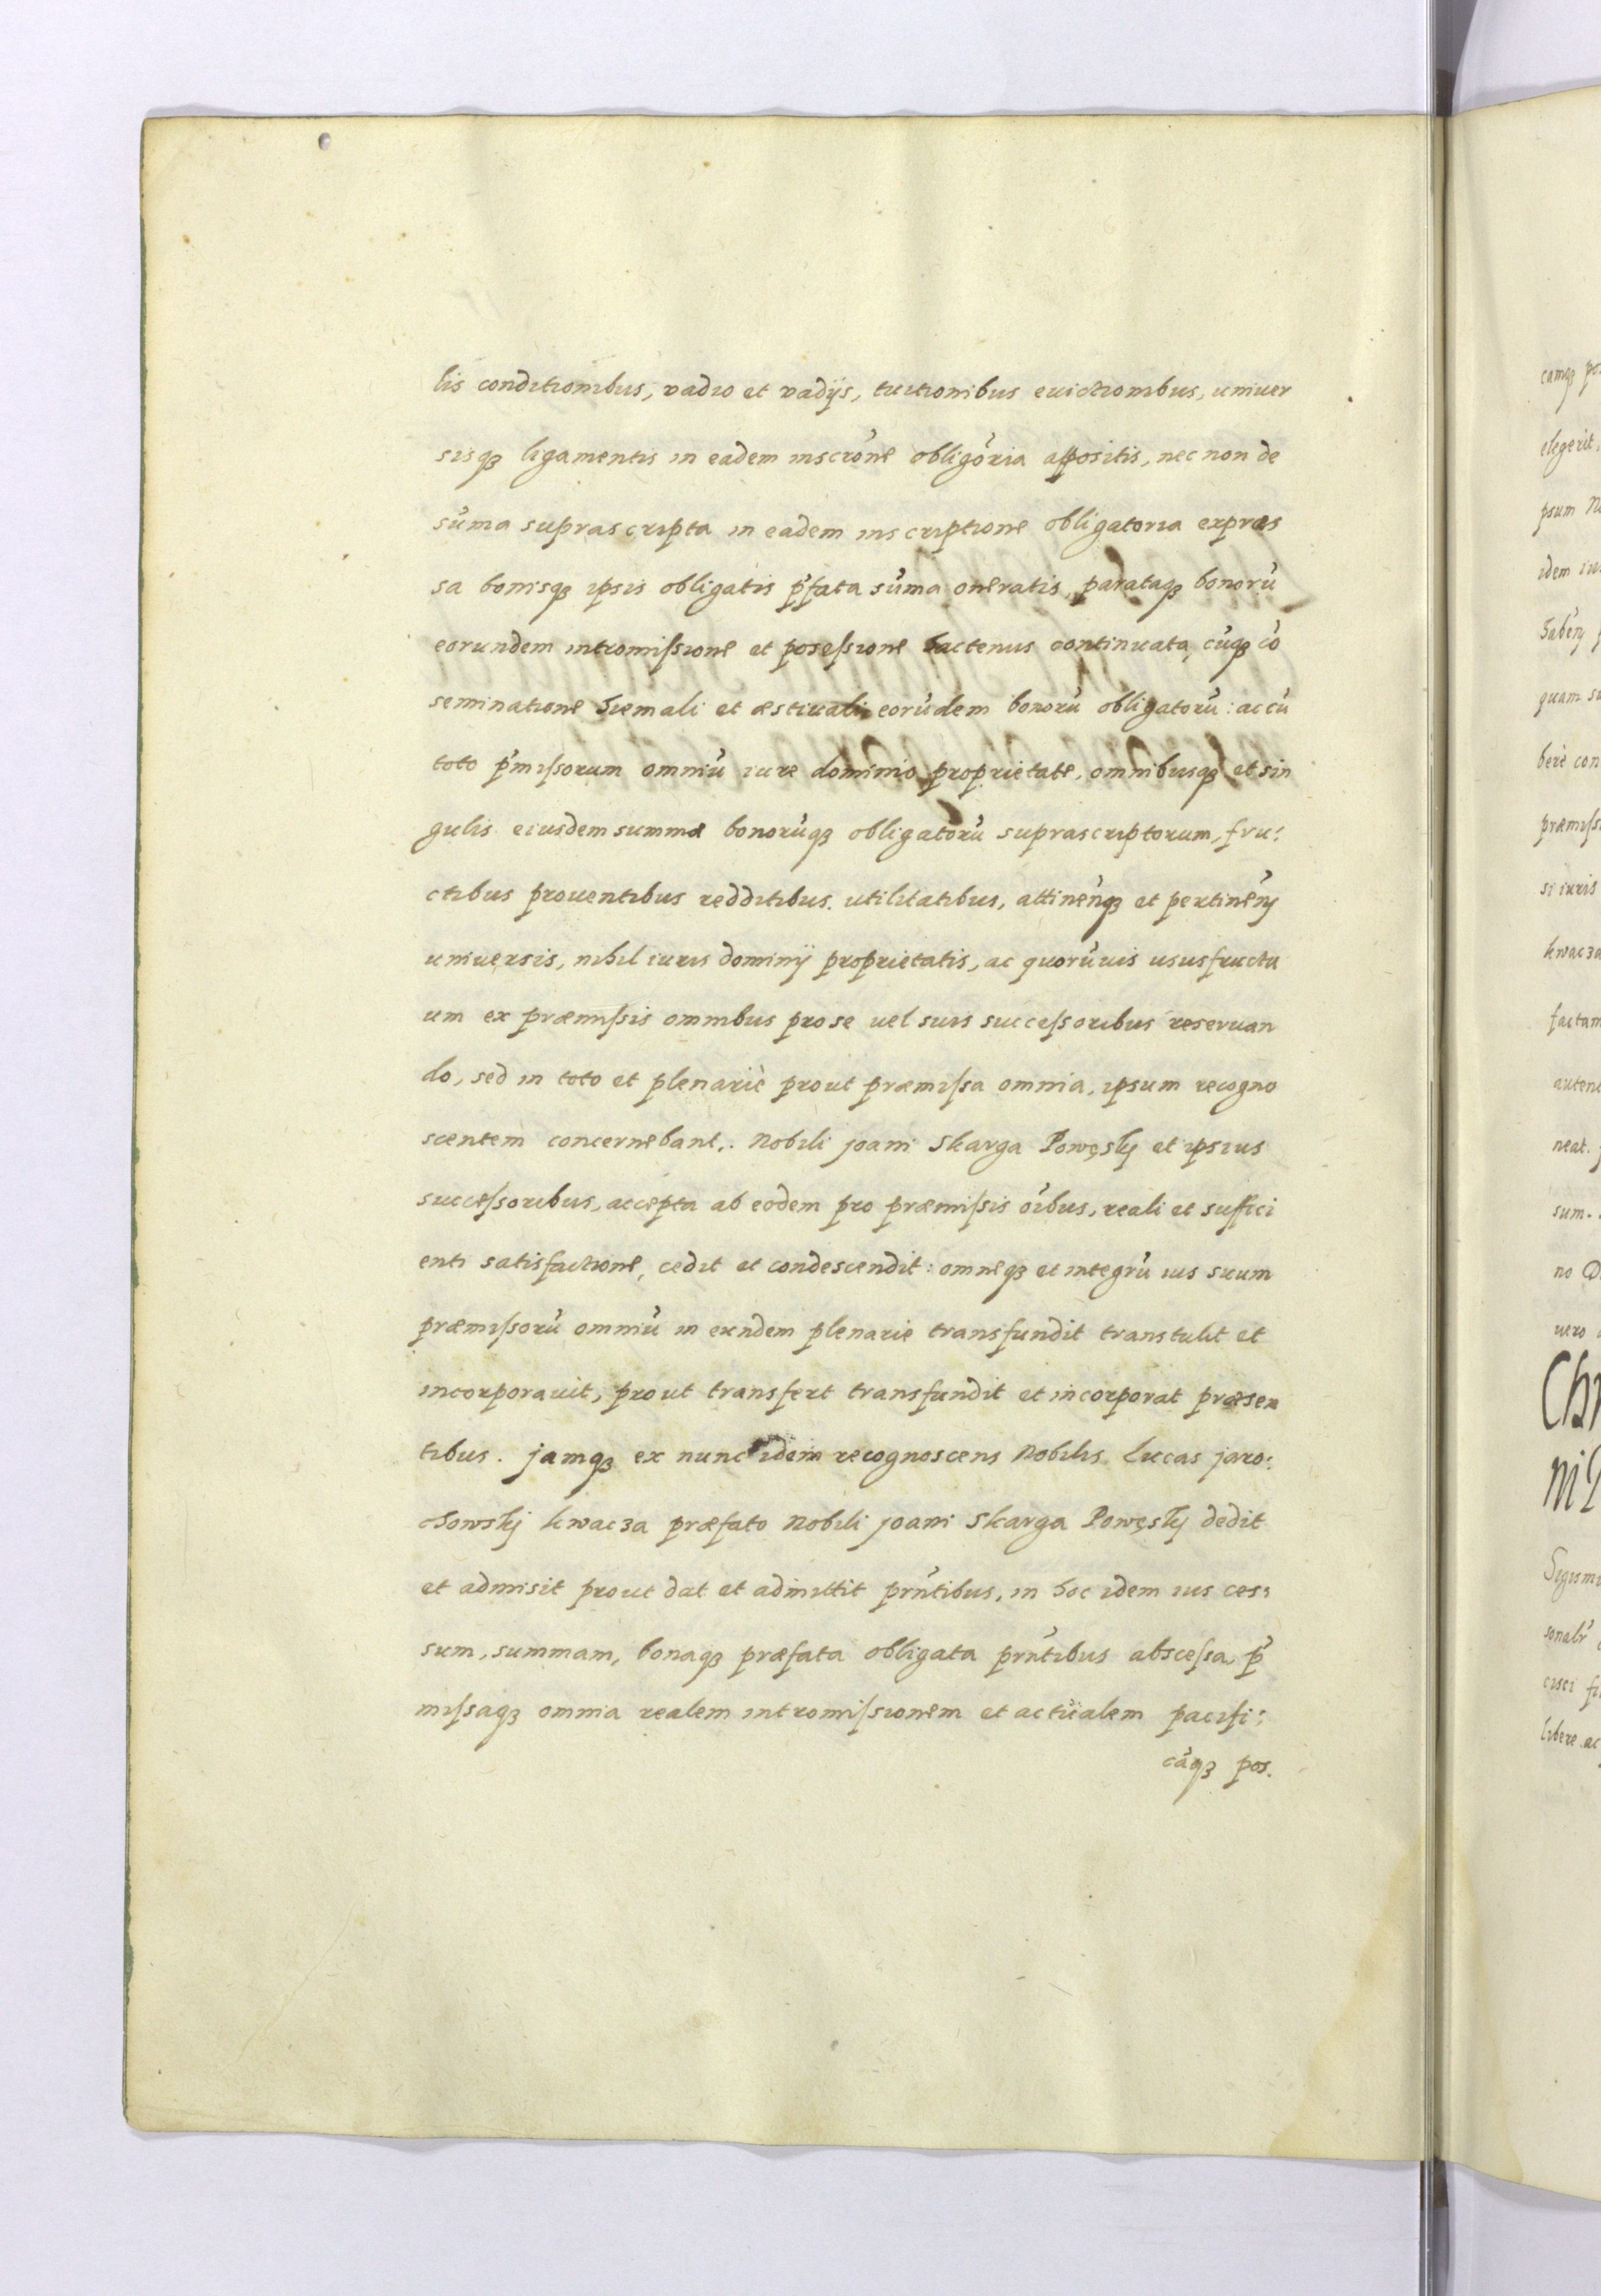 lis conditionibus, vadio et vadijs, tuitionibus evictionibus, univer
sisq̃ ligamentis in eadem inscrõne obligõria appositis, nec non de
sũma suprascripta in eadem inscriptione obligatoria expræs
sa bonisq̃ ipsis obligatis p̃fata sũma oneratis, parataq̃ bonorũ
eorundem intromiſsione et poseſsione hactenus continuata, cũq̃ cõ
seminatione hiemali et æstiuali eorũdem bonorũ obligatorũ: ac cũ
toto p̃miſsorum omniũ iure dominio proprietate, omnibusq̃ et sin
gulis eiusdem summæ bonorũq̃ obligatorũ suprascriptorum, fru:
ctibus prouentibus redditibus utilitatibus, attineñq̃ et pertineñ
uniuersis, nihil iuris dominij proprietatis, ac quorũuis ususfructu
um ex præmiſsis omnibus pro se uel suis succeſsoribus reseruan
do, sed in toto et plenariè prout præmiſsa omnia, ipsum recogno
scentem concernebant,. Nobili joani Skarga Powęskj et ipsius
succeſsoribus, accepta ab eodem pro præmiſsis oĩbus, reali et suffici
enti satisfactione, cedit et condescendit: omneq̃ et integrũ ius suum
præmiſsorũ omniũ in eundem plenarie transfundit transtulit et
incorporauit, prout transfert transfundit et incorporat præsen
tibus. jamq̃ ex nunc idem recognoscens Nobilis Lucas jaro:
chowskj kwacza præfato Nobili joani Skarga Powęskj dedit
et admisit prout dat et admittit prñtibus, in hoc idem ius ces:
sum, summam, bonaq̃ præfata obligata prñtibus absceſsa, p̃
miſsaq̃ omnia realem intromiſsionem et actüalem pacifi:
cãq̃ pos.
elegerit
psum
idem
quam
berè con
præmiſs
si iuris
kwacza
factam
neat.
sum.
no
uero
Sigism
libere ac